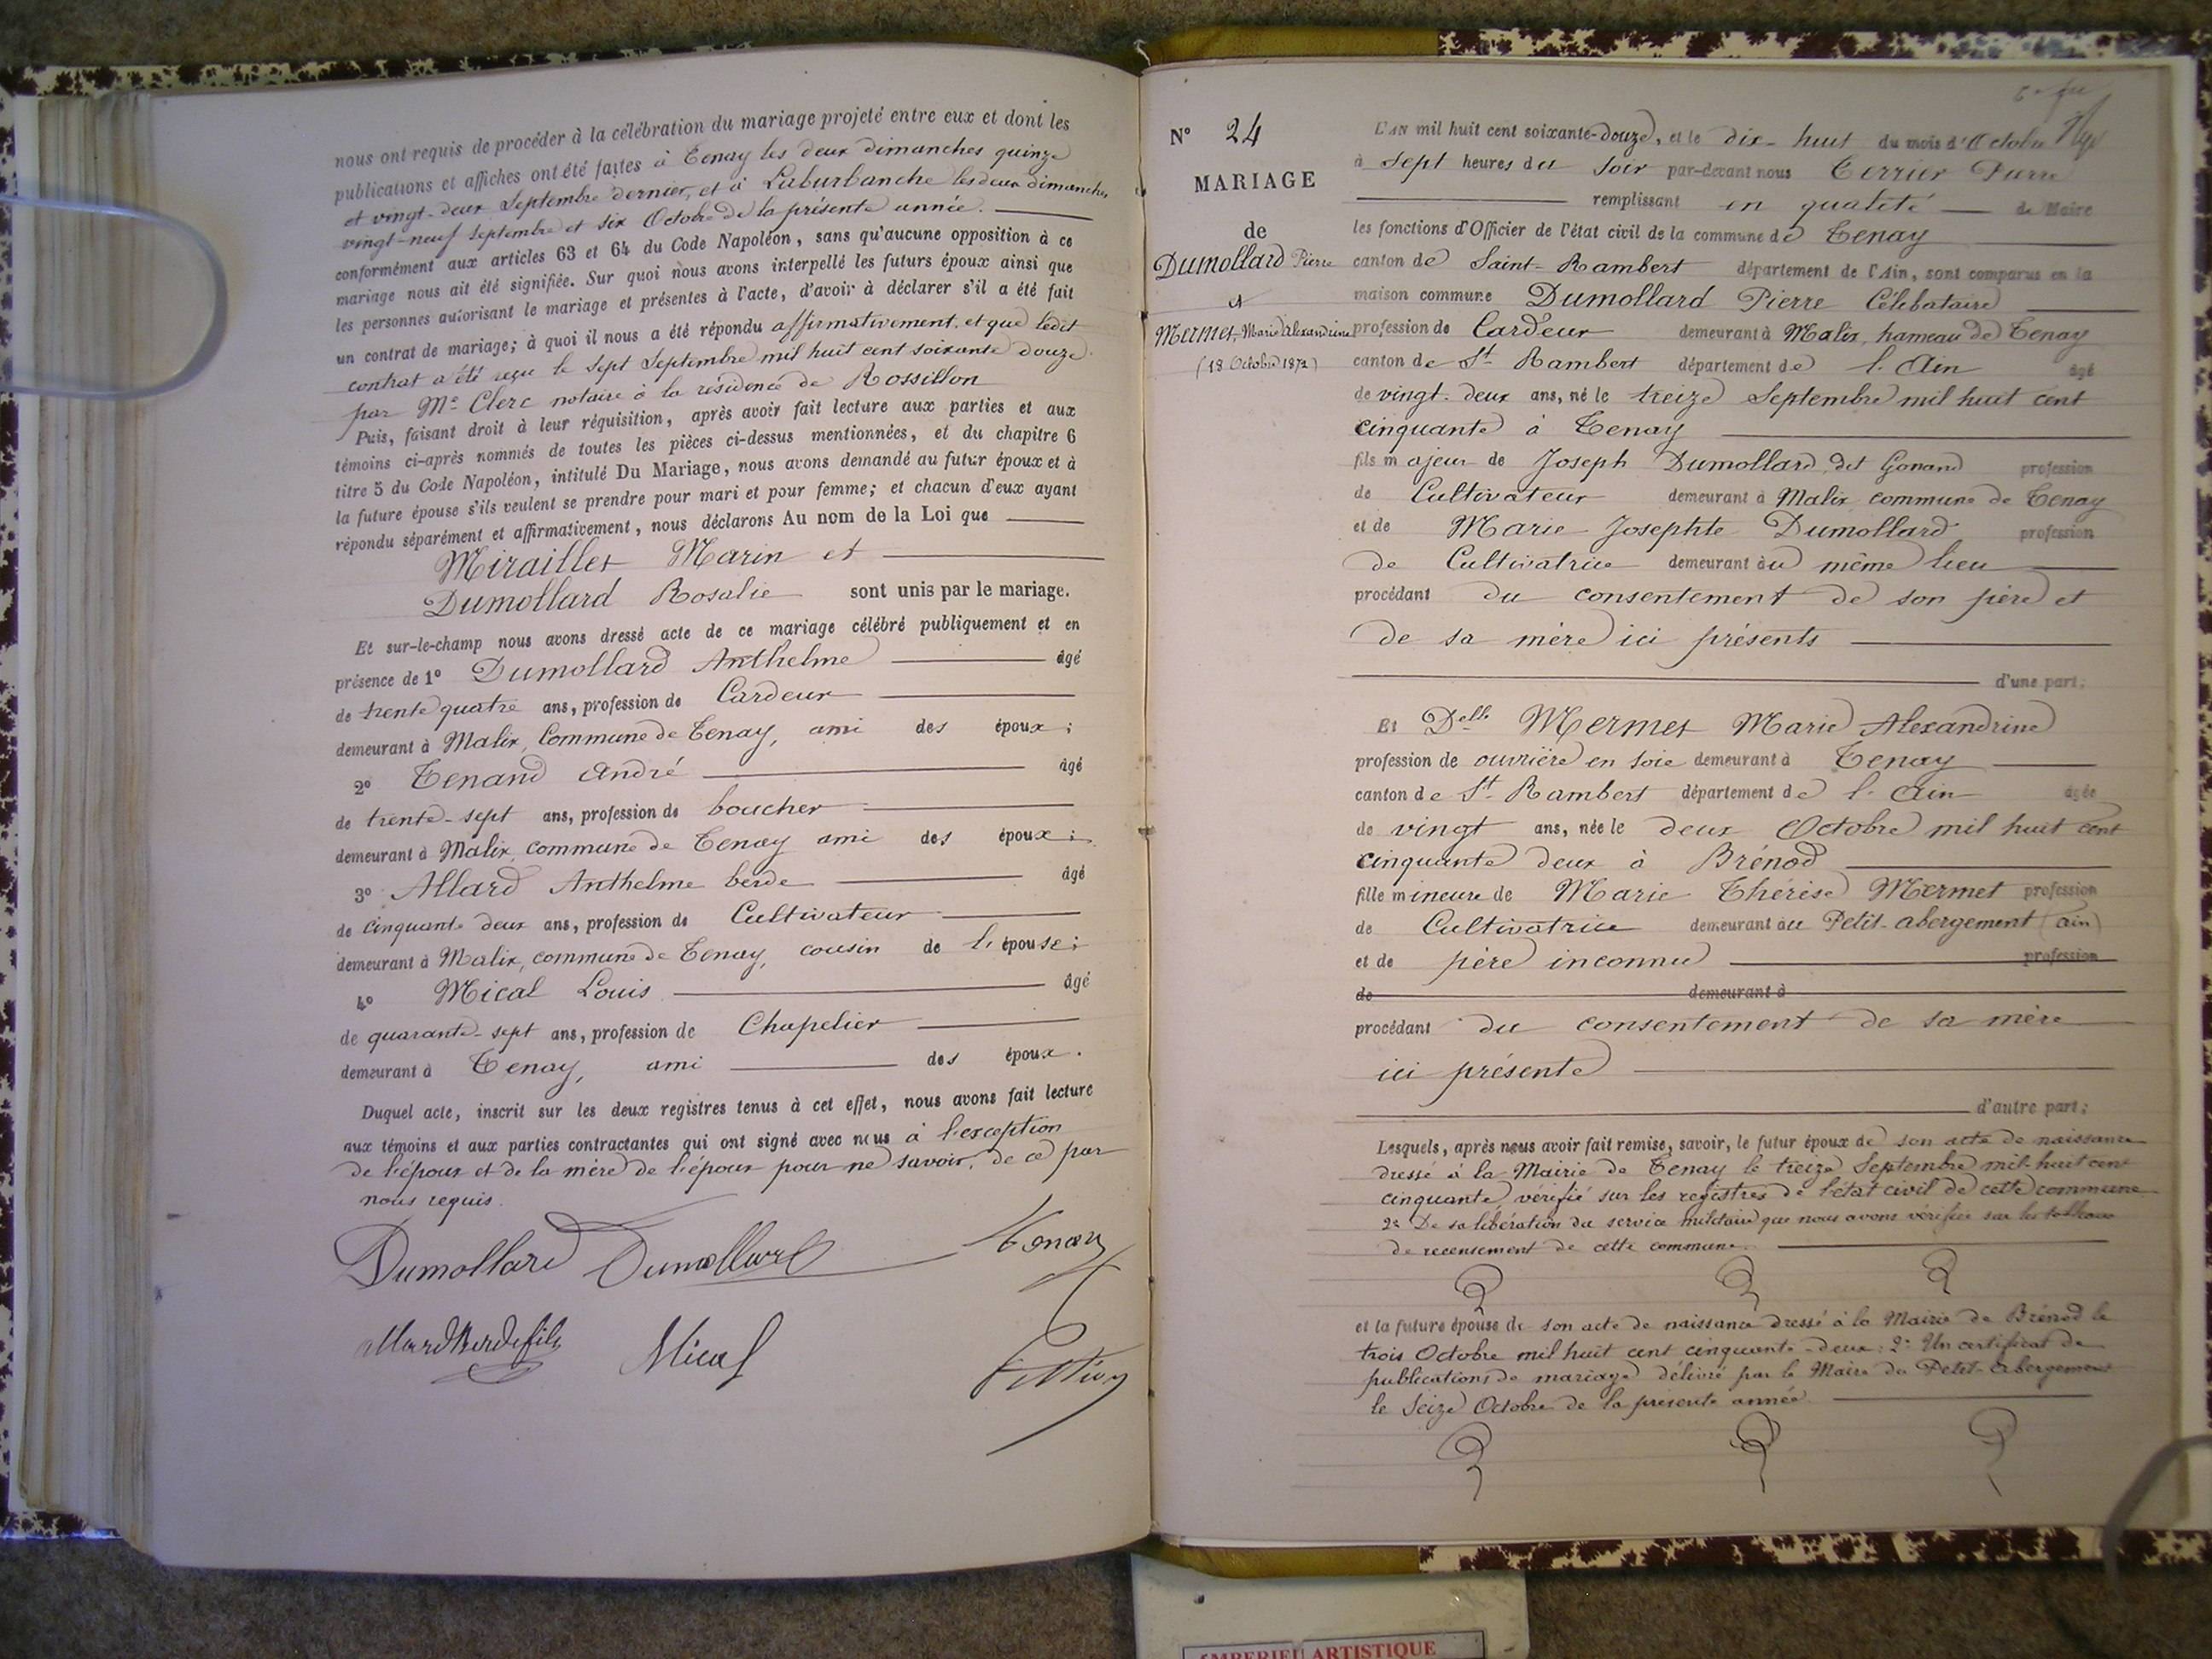 nous ont requis de procéder à la célébration du mariage projeté entre eux et dont les
publications et affiches ont été faites à Tenay les deux dimanches quinze
et vingt-deux Septembre dernier, et à Laburbanche les deux dimanches
vingt-neuf Septembre et six Octobre de la présente année.
conformément aux articles 63 et 64 du Code Napoléon, sans qu'aucune opposition à ce
mariage nous ait été signifiée. Sur quoi nous avons interpellé les futurs époux ainsi que
les personnes autorisant le mariage et présentes à l'acte, d'avoir à déclarer s'il a été fait
un contrat de mariage; à quoi il nous a été répondu affirmativement, et que ledit
contrat a été reçu le sept Septembre mil huit cent soixante douze
par Me Clerc notaire à la résidence de Rossillon
Puis, faisant droit à leur réquisition, après avoir fait lecture aux parties et aux
témoins ci-après nommés de toutes les pièces ci-dessus mentionnées, et du chapitre 6
titre 5 du Code Napoléon, intitulé Du Mariage, nous avons demandé au futur époux et à
la future épouse s'ils veulent se prendre pour mari et pour femme; et chacun d'eux ayant
répondu séparément et affirmativement, nous déclarons Au nom de la Loi que
Miraillet Marin et
Dumollard Rosalie sont unis par le mariage.
Et sur-le-champ nous avons dressé acte de ce mariage célébré publiquement et en
présence de 1° Dumollard Anthelme âgé
de trente quatre ans, profession de Cardeur
demeurant à Malix, Commune de Tenay, ami des époux;
2° Tenand André âgé
de trente-sept ans, profession de boucher
demeurant à Malix, commune de Tenay ami des époux;
3° Allard Anthelme berde âgé
de cinquante deux ans, profession de Cultivateur
demeurant à Malix, commune de Tenay, cousin de l'épouse;
4° Mical Louis âgé
de quarante-sept ans, profession de Chapelier
demeurant à Tenay, ami des époux.
Duquel acte, inscrit sur les deux registres tenus à cet effet, nous avons fait lecture
aux témoins et aux parties contractantes qui ont signé avec nous à l'exception
de l'époux et de la mère de l'époux pour ne savoir, de ce par
nous requis.
Dumollard Dumollard
Mical
N° 24
MARIAGE
de
Dumollard Pierre
et
Mermet, Marie Alexandrine
(18 Octobre 1872)
L'AN mil huit cent soixante-douze, et le dix-huit du mois d'Octobre
à sept heures du soir par-devant nous Terrier Pierre
remplissant en qualité de Maire
les fonctions d'Officier de l'état civil de la commune de Tenay
canton de Saint-Rambert département de l'Ain, sont comparus en la
maison commune Dumollard Pierre Célebataire
profession de Cardeur demeurant à Malix, hameau de Tenay
canton de St Rambert département de l'Ain âgé
de vingt-deux ans, né le treize Septembre mil huit cent
cinquante à Tenay
fils majeur de Joseph Dumollard dit Gonand profession
de Cultivateur demeurant à Malix commune de Tenay
et de Marie Josephte Dumollard profession
de Cultivatrice demeurant au même lieu
procédant du consentement de son père et
de sa mère ici présents
d'une part;
Et Delle Mermet Marie Alexandrine
profession de ouvrière en soie demeurant à Tenay
canton de St Rambert département de l'Ain âgée
de vingt ans, née le deux Octobre mil huit cent
cinquante deux à Brénod
fille mineure de Marie Thérèse Mermet profession
de Cultivatrice demeurant au Petit-abergement (ain)
et de père inconnu profession
de demeurant à
procédant du consentement de sa mère
ici présente
d'autre part;
Lesquels, après nous avoir fait remise, savoir, le futur époux de son acte de naissance
dressé à la Mairie de Tenay le treize Septembre mil-huit cent
cinquante, vérifié sur les registres de l'état civil de cette commune
2° De sa libération du service militaire que nous avons vérifiée sur les tableaux
de recensement de cette commune.
et la future épouse de son acte de naissance dressé à la Mairie de Brénod le
trois Octobre mil huit cent cinquante-deux; 2° Un certificat de
publications de mariage délivré par le Maire du Petit-Abergement
le Seize Octobre de la présente année
AMBERIEU ARTISTIQUE